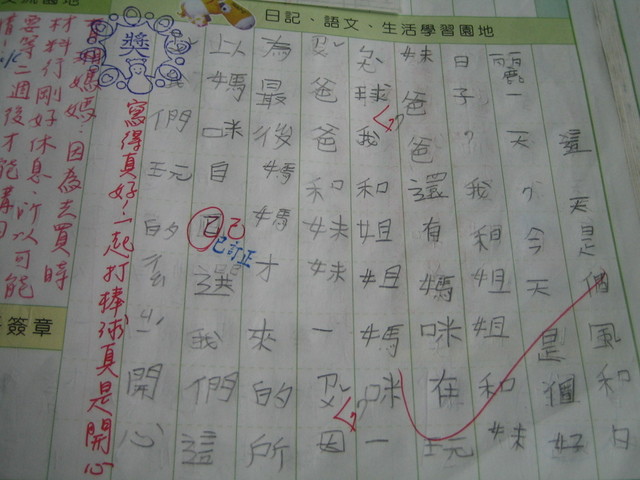 日記、語文、生活學習園地
這天是個風和日
麗一天，今天是個好
日子，我和姐姐和妹
妹爸爸還有媽咪在玩
球我和姐姐媽咪一
爸爸和妹妹一因
為最後媽媽才來的所
以媽咪自己選我們這
們玩的開心
己
已訂正
獎
寫得真好！一起打棒球真是開心
媽媽：因為去買時
材料行剛好休息，所以可能
要等二週後才能
簽章